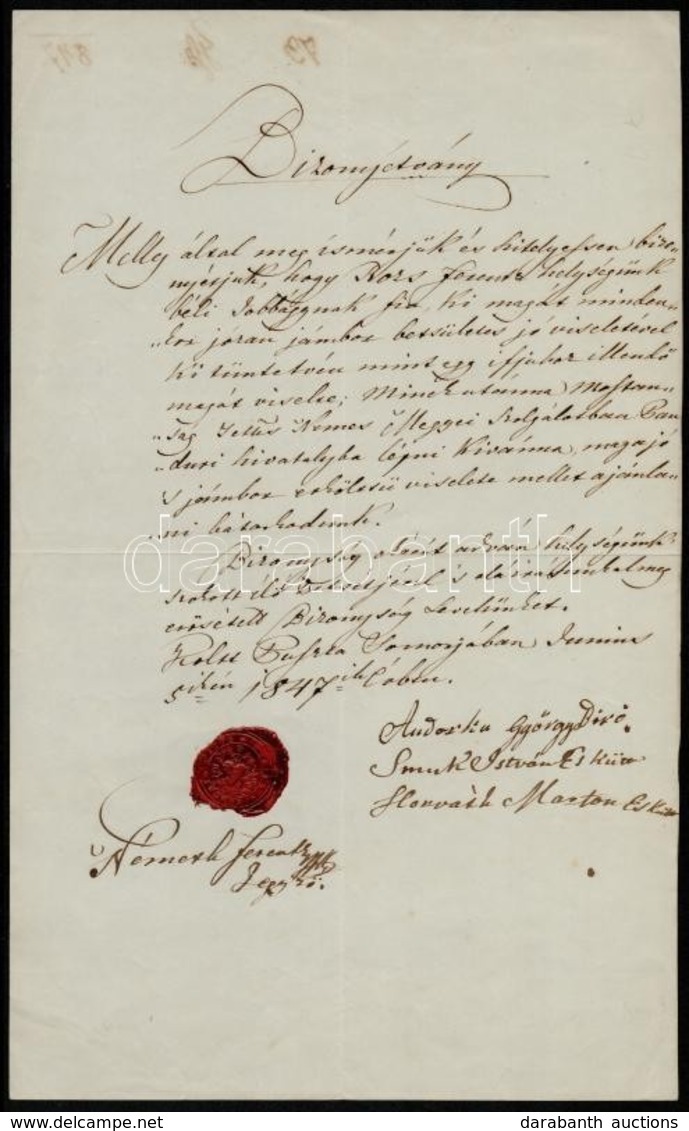 Bizonyétvány
Melly által meg ismérjük és hitelyessen bizo„
nyétjuk, hogy Kozs Ferentz helységünk
béli Jobbágynak fia, ki magát minden„
„kor józan jámbor betsületes jó viseletével
Ki tüntetvén mint egy ifjuhoz illendő
magát viselte; Minek utánna Mostan„
„ság Tettes Nemes Megyei szolgálatban Pan„
„duri hivatalyba lépni Kivánna, maga jó
's jámbor erkőltsü viselete mellet ajánla„
„ni bátorkodunk.
Bizonyság okáért adván helységünk
szokott élő Petsétjével 's aláirásunkal meg
erősétett Bizonyság Levelünket.
Költ Puszta Somorjában Junius
5ikén 1847ik Évben.
Andorka György Biró.
Smuk István Esküt
Horváth Marton Eskütt
Németh Ferentz
Jegyző.
darabanth
darabanth auctions